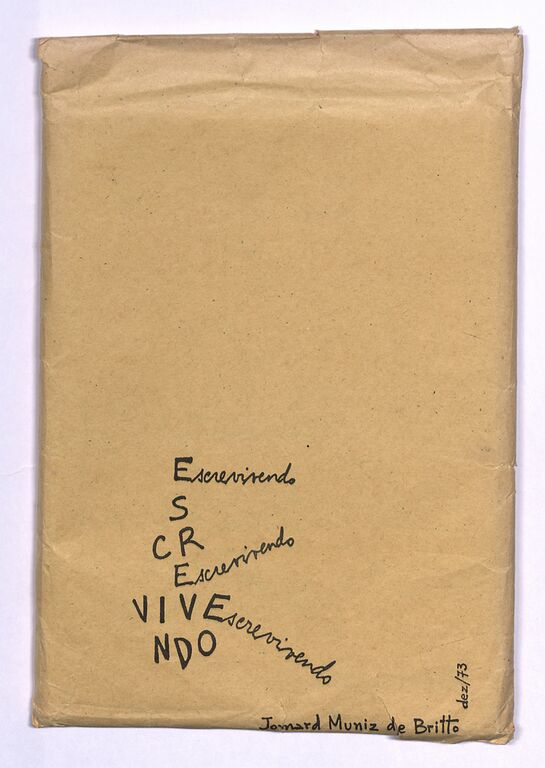 Escrevivendo
S
CR
Escrevivendo
VIVEscrevivendo
NDO
dez/73
Jomard Muniz de Britto